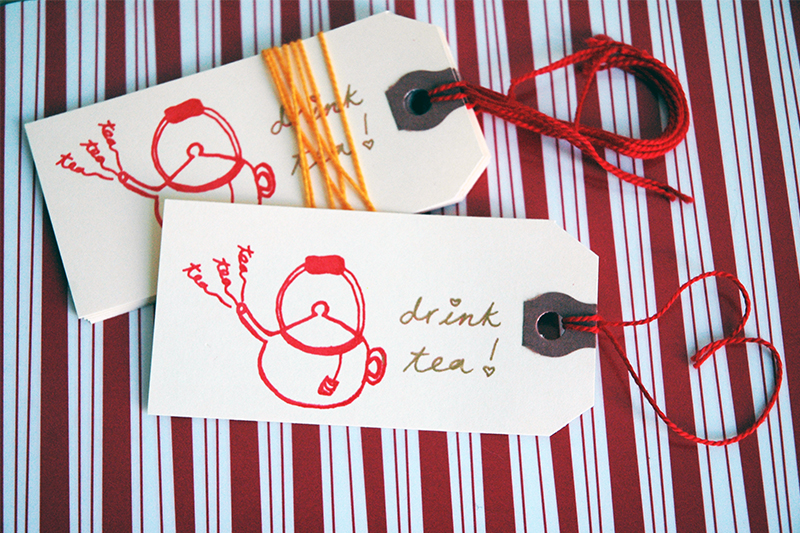 tea
tea
tea
drink
tea!
tea
tea
tea
drink
tea!